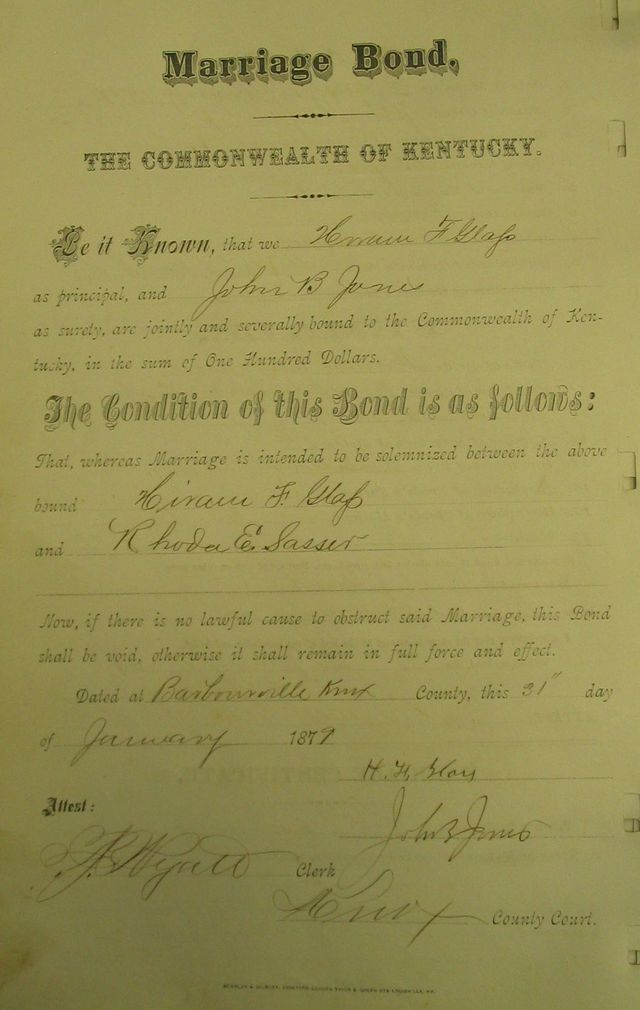 Marriage Bond.
THE COMMONWEALTH OF KENTUCKY.
Be it Known, that we Hiram F Glass
as principal, and John B Jones
as surety, are jointly and severally bound to the Commonwealth of Ken-
tucky, in the sum of One Hundred Dollars.
The Condition of this Bond is as follows:
That, whereas Marriage is intended to be solemnized between the above
bound Hiram F. Glass
and Rhoda E. Sasser
Now, if there is no lawful cause to obstruct said Marriage, this Bond
shall be void, otherwise it shall remain in full force and effect.
Dated at Barbourville Knox County, this 31" day
of January 1879
H. F. Glass
Attest:
John B Jones
Clerk
Knox County Court.